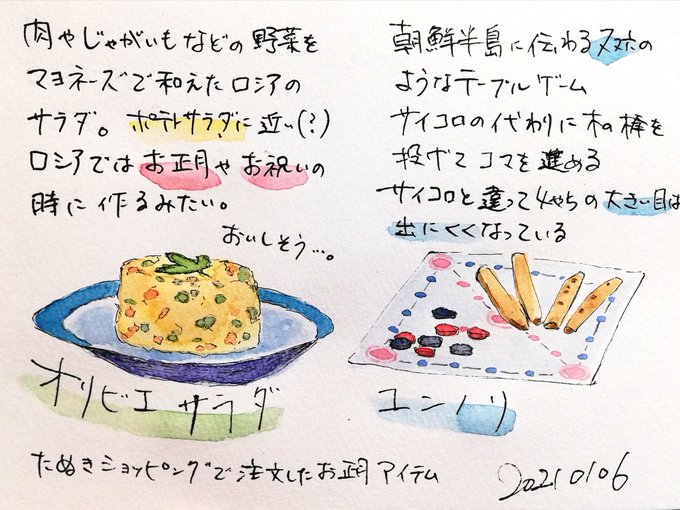 肉やじゃがいもなどの野菜を
マヨネーズで和えたロシアの
サラダ。ポテトサラダに近い(?)
ロシアではお正月やお祝いの
時に作るみたい。
おいしそう…。
オリビエサラダ
朝鮮半島に伝わるスゴロクの
ようなテーブルゲーム
サイコロの代わりに木の棒を
投げてコマを進める
サイコロと違って4や5の大きい目は
出にくくなっている
ユンノリ
たぬきショッピングで注文したお正月アイテム
20210106